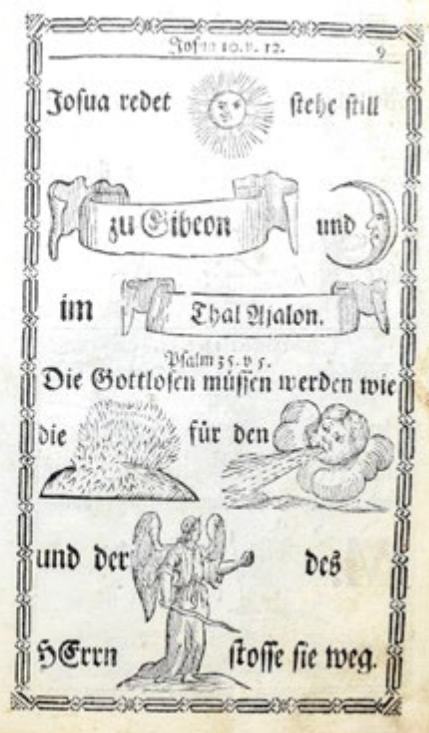 Josua 10. v. 12. 9
Josua redet stehe still
zu Gibeon und
im Thal Ajalon.
Psalm 35. v 5.
Die Gottlosen müssen werden wie
die für den
und der des
HErrn stosse sie weg.